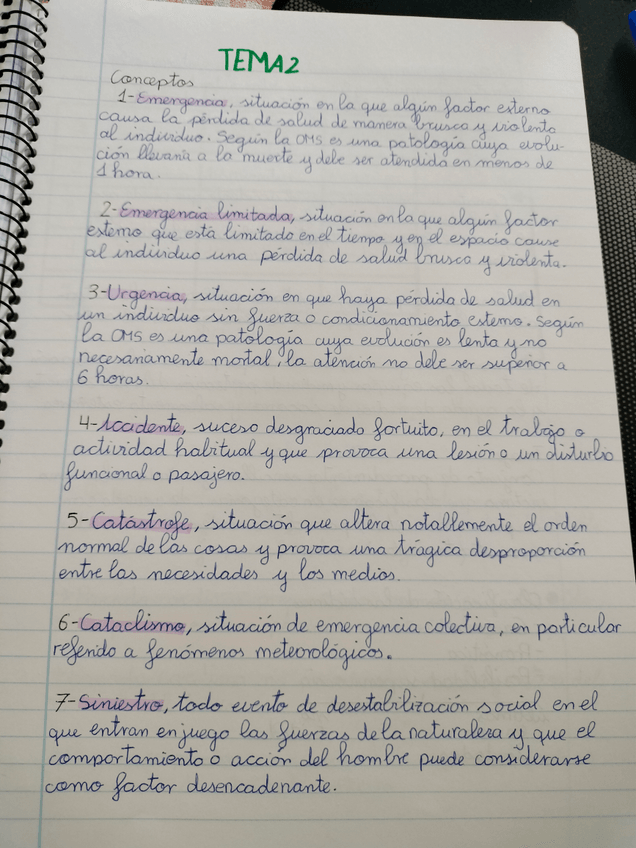 TEMA2
Conceptos
1-Emergencia, situación en la que algún factor externo
causa la pérdida de salud de manera brusca y violenta
al individuo. Según la OMS es una patología cuya evolu-
ción llevaria a la muerte y debe ser atendida en menos de
1 hora.
2-Emergencia limitada, situación en la que algún factor
externo que está limitado en el tiempo y en el espacio cause
al individuo una pérdida de salud brusca y violenta.
3-Urgencia, situación en que haya pérdida de salud en
un individuo sin fuerza o condicionamiento externo. Según
la OMS es una patología cuya evolución es lenta y no
necesariamente mortal, la atención no debe ser superior a
6 horas.
4-Accidente, suceso desgraciado fortuito, en el trabajo o
actividad habitual y que provoca una lesión o un disturbio
funcional o pasajero.
5-Catástrofe, situación que altera notablemente el orden
normal de las cosas y provoca una trágica desproporción
entre las necesidades y los medios.
6-Cataclismo, situación de emergencia colectiva, en particular
referido a fenómenos meteorológicos.
7-Siniestro, todo evento de desestabilización social en el
que entran en juego las fuerzas de la naturaleza y que el
comportamiento o acción del hombre puede considerarse
como factor desencadenante.